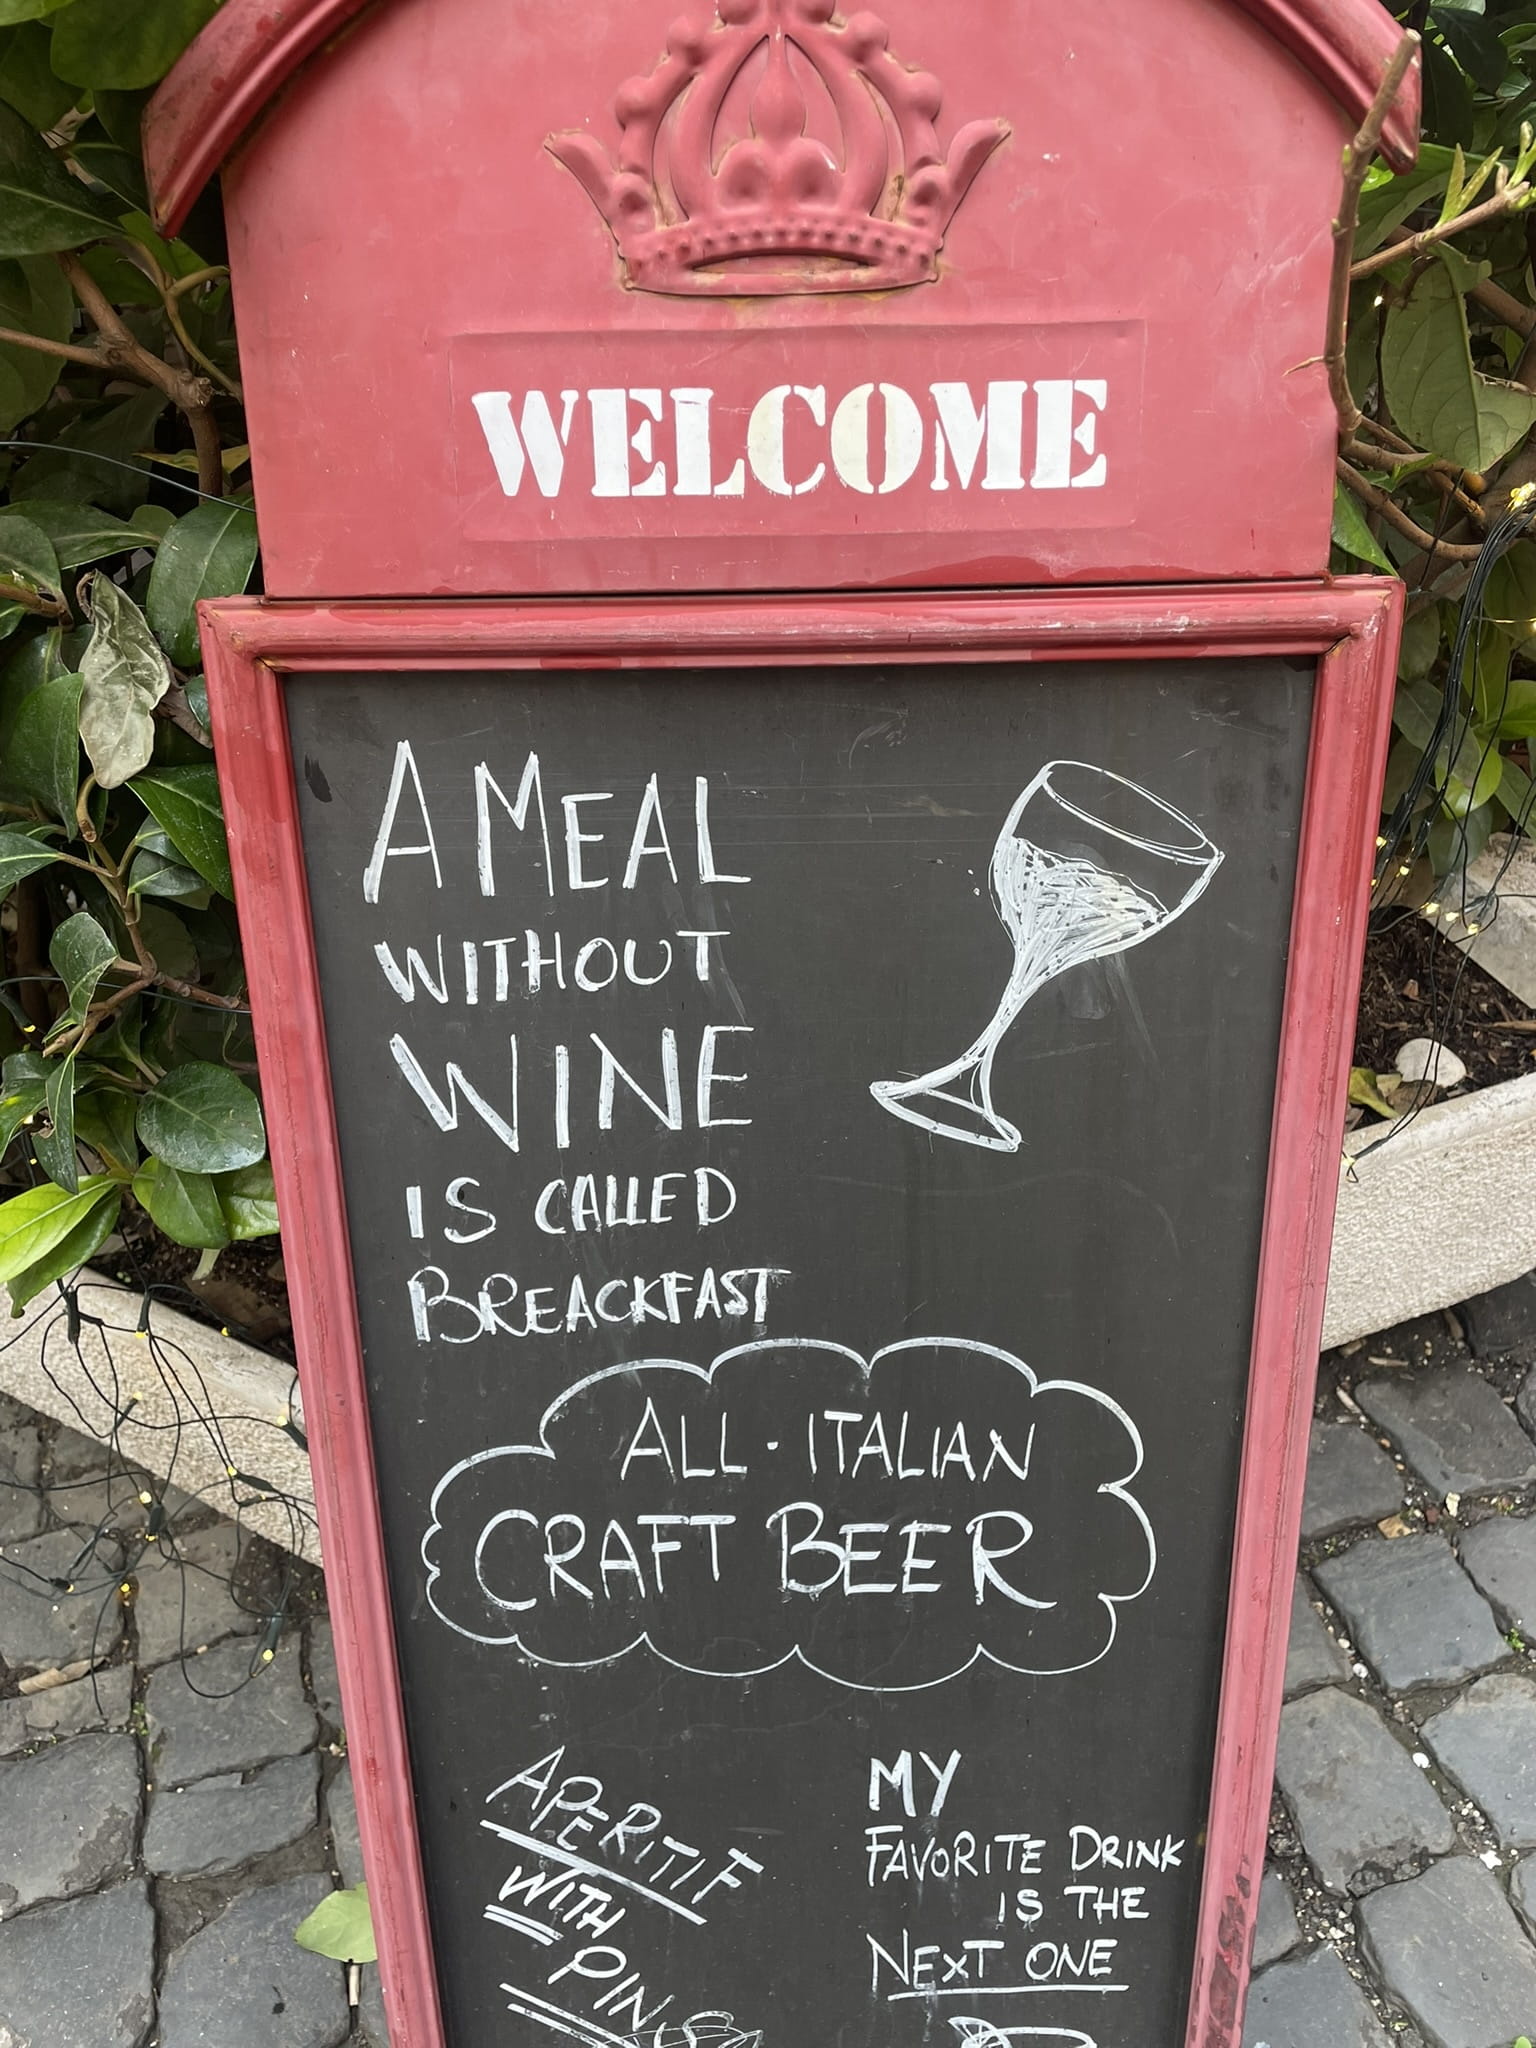 WELCOME
A MEAL
WITHOUT
WINE
IS CALLED
BREACKFAST
ALL-ITALIAN
CRAFT BEER
APERITIF
WITH
MY
FAVORITE DRINK
IS THE
NEXT ONE